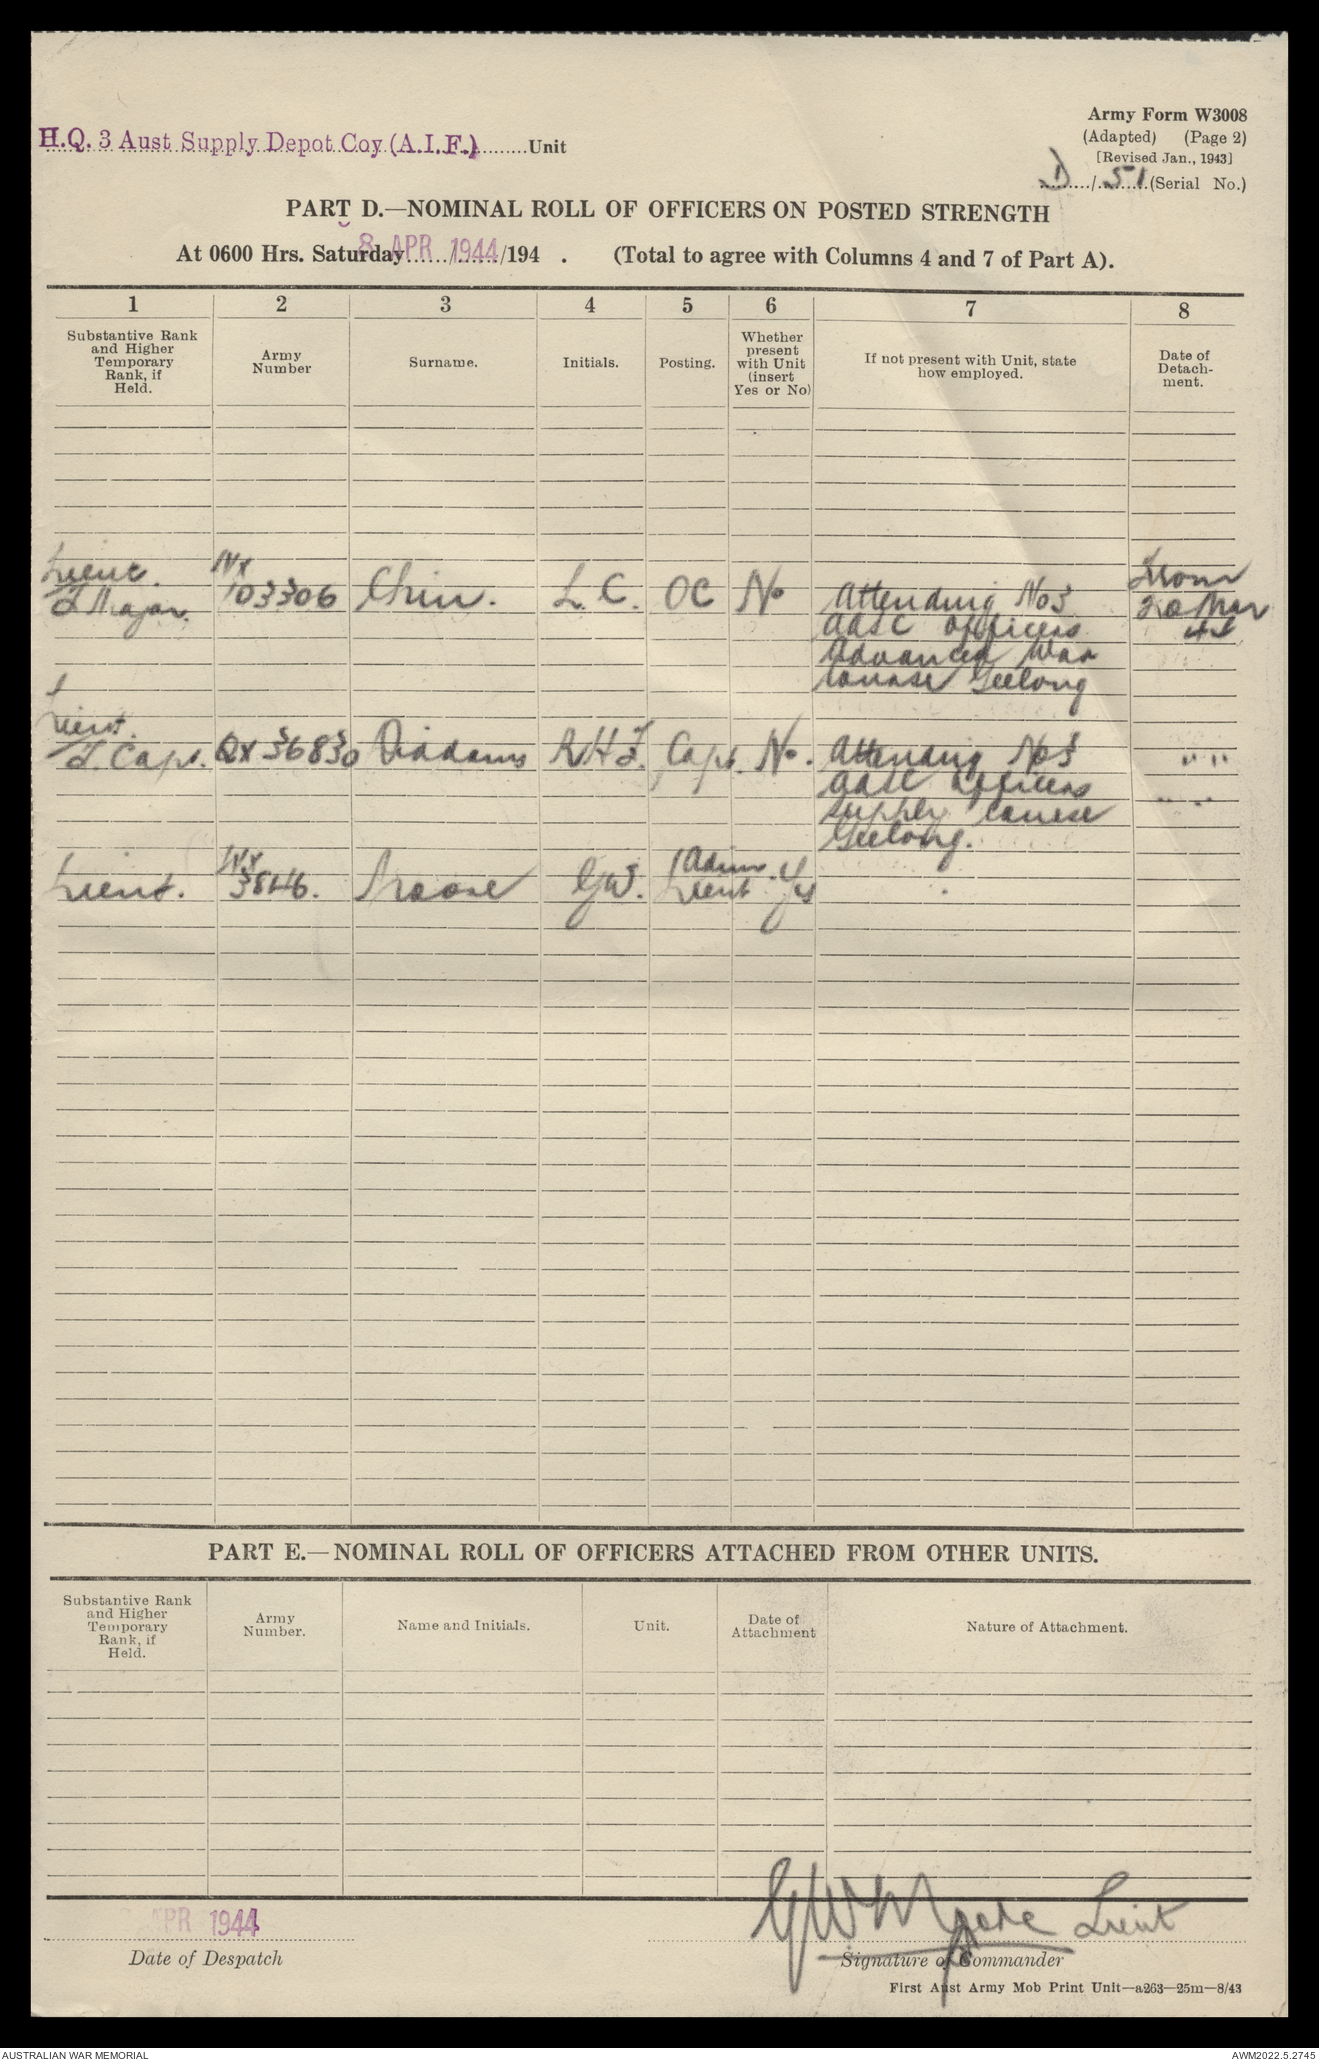 Army Form W3008
(Adapted) (Page 2)
[Revised Jan., 1943]
H.Q. 3 Aust Supply Depot Coy (A.I.F.) Unit
D/51 (Serial No.)
PART D.—NOMINAL ROLL OF OFFICERS ON POSTED STRENGTH
At 0600 Hrs. Saturday 8 APR 1944/194 . (Total to agree with Columns 4 and 7 of Part A).
1 2 3 4 5 6 7 8
Substantive Rank and Higher Temporary Rank, if Held.
Army Number
Surname.
Initials.
Posting.
Whether present with Unit (insert Yes or No)
If not present with Unit, state how employed.
Date of Detach-ment.
Lieut. NX From
T/Major. 103306 Chin. L.C. OC No Attending No3 20 Mar
AASC Officers 44
Advanced War
Course Geelong
Lieut.
T. Capt. QX 36830 R H T. Capt. No. Attending No3 " "
AASC Officers " "
Supply Course
Geelong.
NX Adm.
Lieut. 3846. Moore GW. Lieut Yes
PART E.—NOMINAL ROLL OF OFFICERS ATTACHED FROM OTHER UNITS.
Substantive Rank and Higher Temporary Rank, if Held.
Army Number.
Name and Initials.
Unit.
Date of Attachment
Nature of Attachment.
APR 1944
GW Moore Lieut
Date of Despatch
Signature of Commander
First Aust Army Mob Print Unit—a263—25m—8/43
AUSTRALIAN WAR MEMORIAL
AWM2022.5.2745